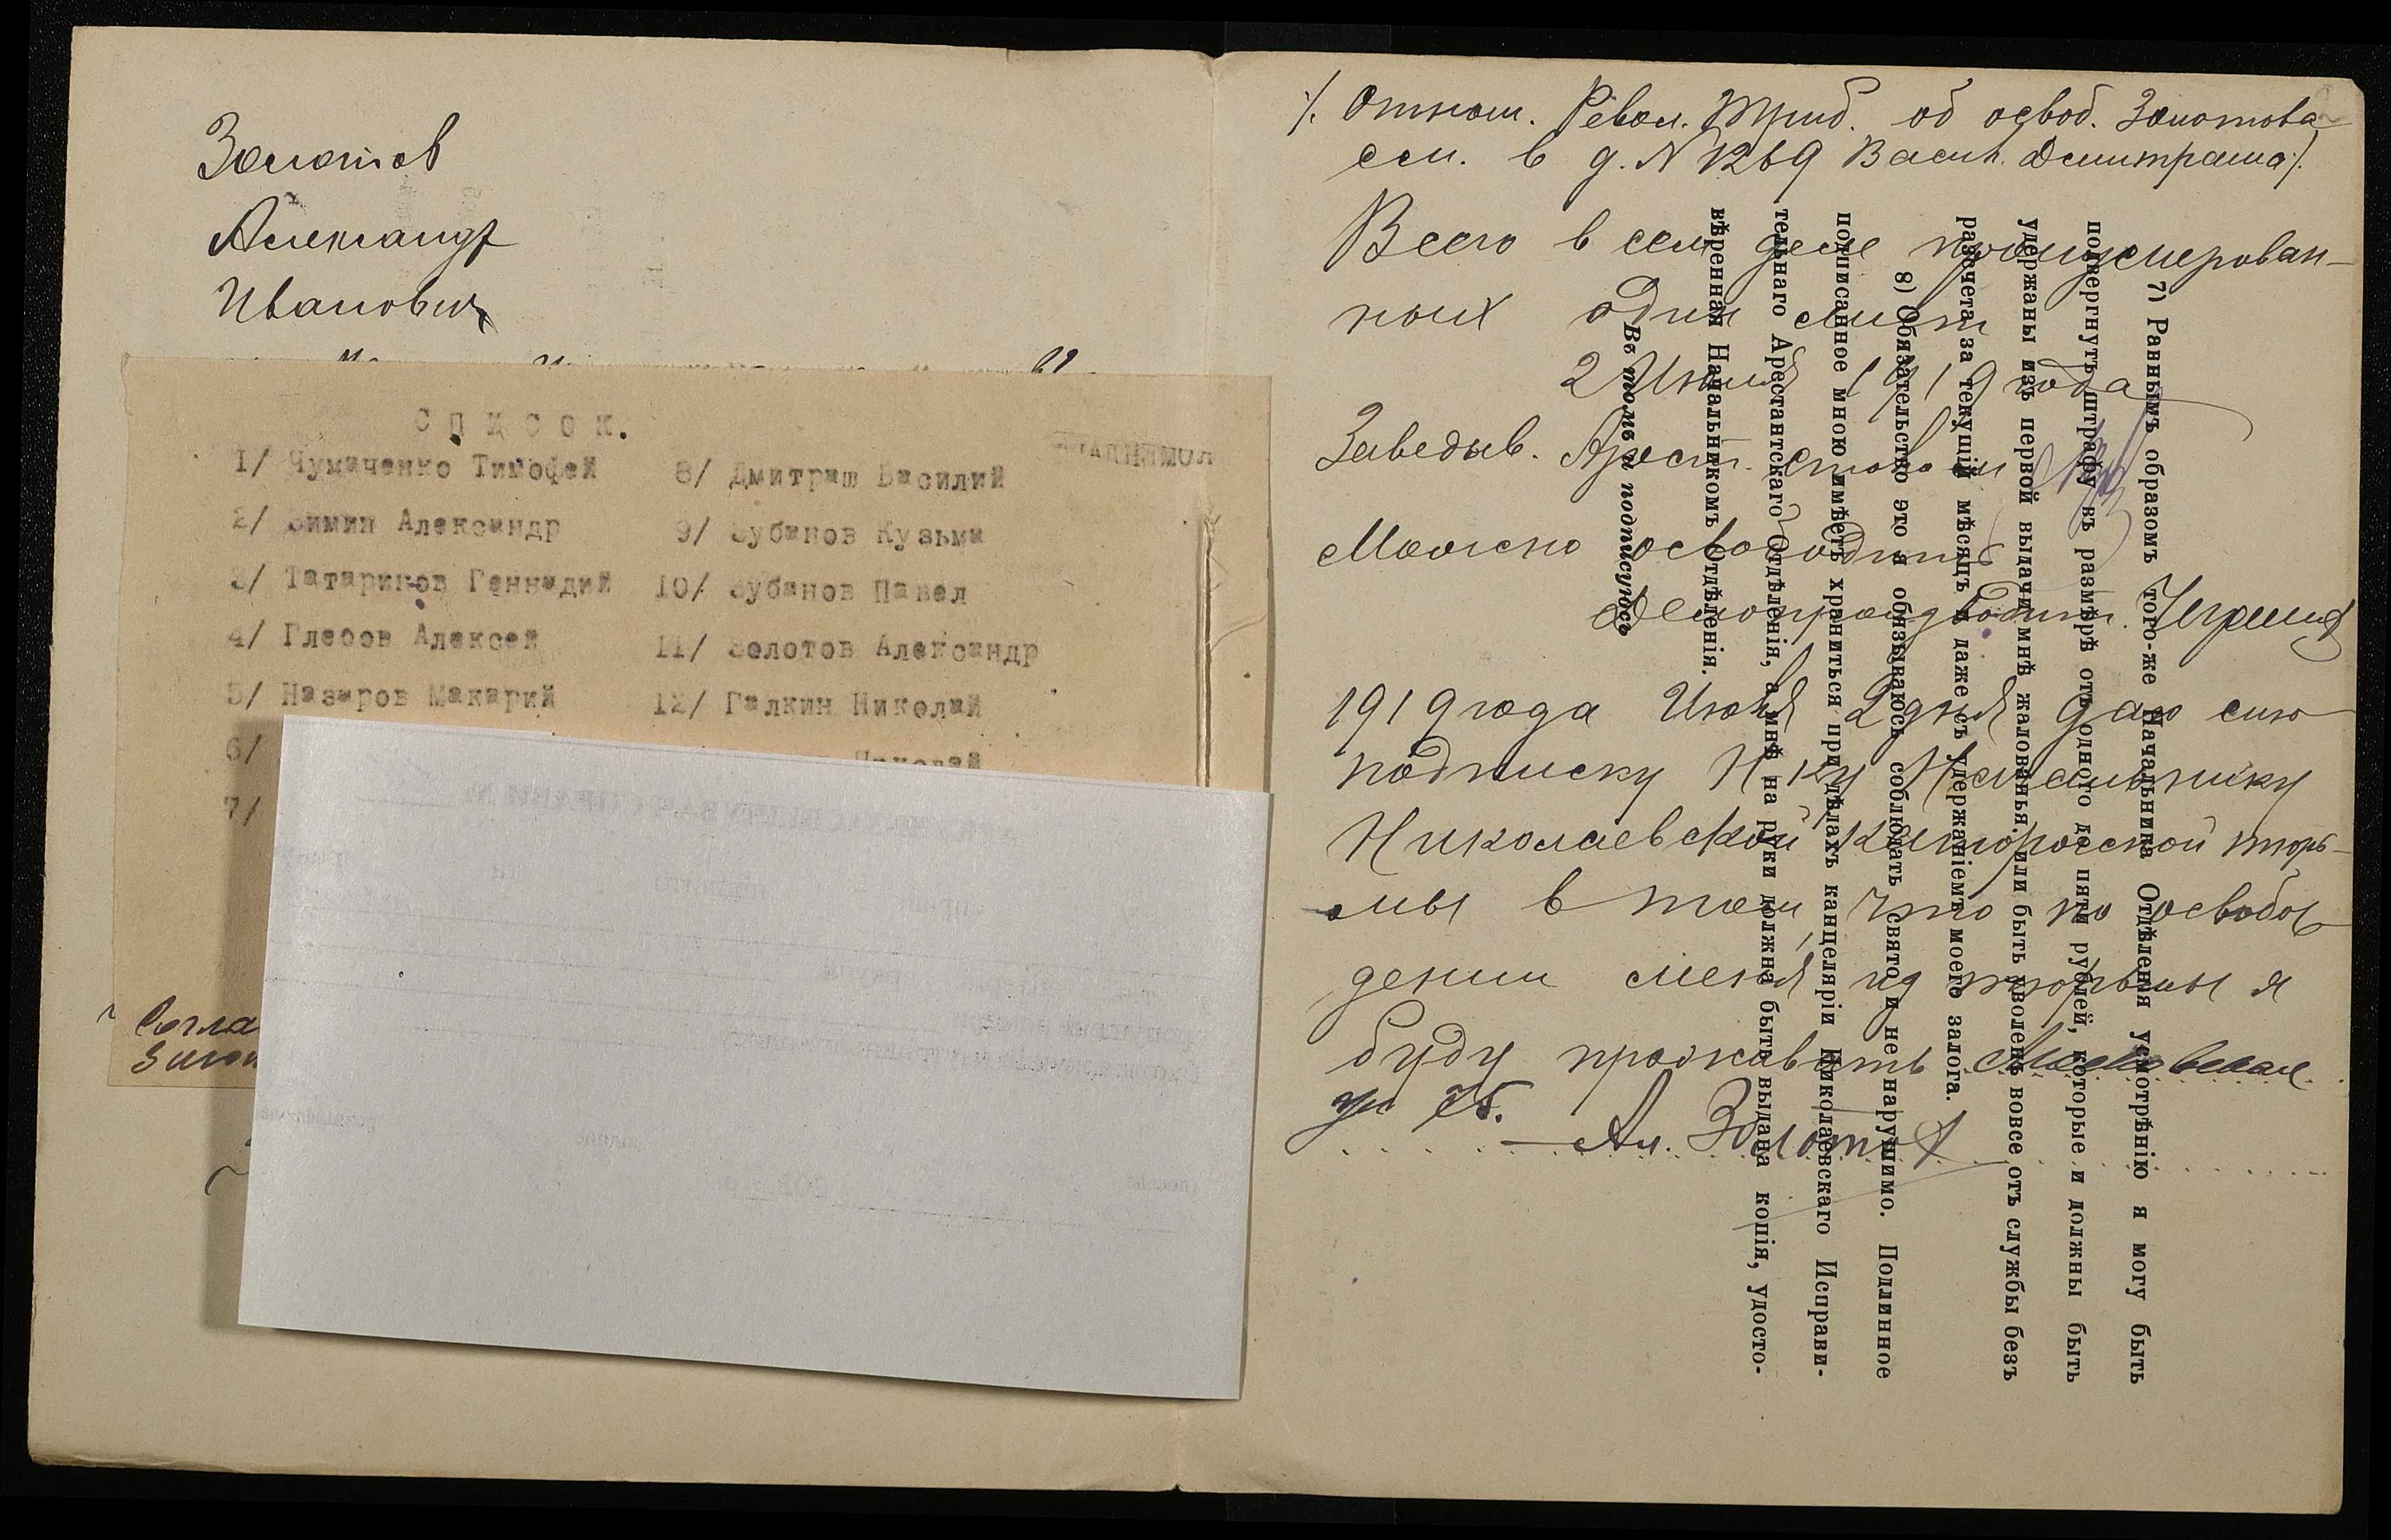 Золотов
Александр
Иванович
Список.
1/ Чумаченко Тимофей
2/ Зимин Александр
3/ Татаринов Геннадий
4/ Глебов Алексей
5/ Назаров Макарий
6/
7/
8/ Дмитраш Василий
9/ Зубанов Кузьма
10/ Зубанов Павел
11/ Золотов Александр
12/ Галкин Николай
Николай
Согла
Золот
/. Отнош. Револ. Триб. об освоб. Золотова
см. в д. N 1269 Васил. Дмитраша/.
Всего в сем деле пронумерован-
ных один лист
2 Июня 1919 года
Заведыв. Арест. столом
Можно освободить
1919 года Июня 2 дня даю сию
подписку Н-ку Начальнику
Николаевской каторжной тюрь-
мы в том, что по освобож
дении меня из тюрьмы я
буду проживать Московская
ул 75.
Ал. Золотов
7) Равнымъ образомъ того-же Начальника Отдѣленія усмотрѣнію я могу быть
подвергнутъ штрафу въ размѣрѣ отъ одного до пяти рублей, которые и должны быть
удержаны изъ первой выдачи мнѣ жалованья, или быть уволенъ вовсе отъ службы безъ
разсчета за текущій мѣсяцъ и даже съ удержаніемъ моего залога.
8) Обязательство это я обязываюсь соблюдать свято и не нарушимо. Подлинное
подписанное мною имѣетъ храниться при дѣлахъ канцеляріи Николаевскаго Исправи-
тельнаго Арестантскаго Отдѣленія, а мнѣ на руки должна быть выдана копія, удосто-
вѣренная Начальникомъ Отдѣленія.
Въ томъ и подписуюсь